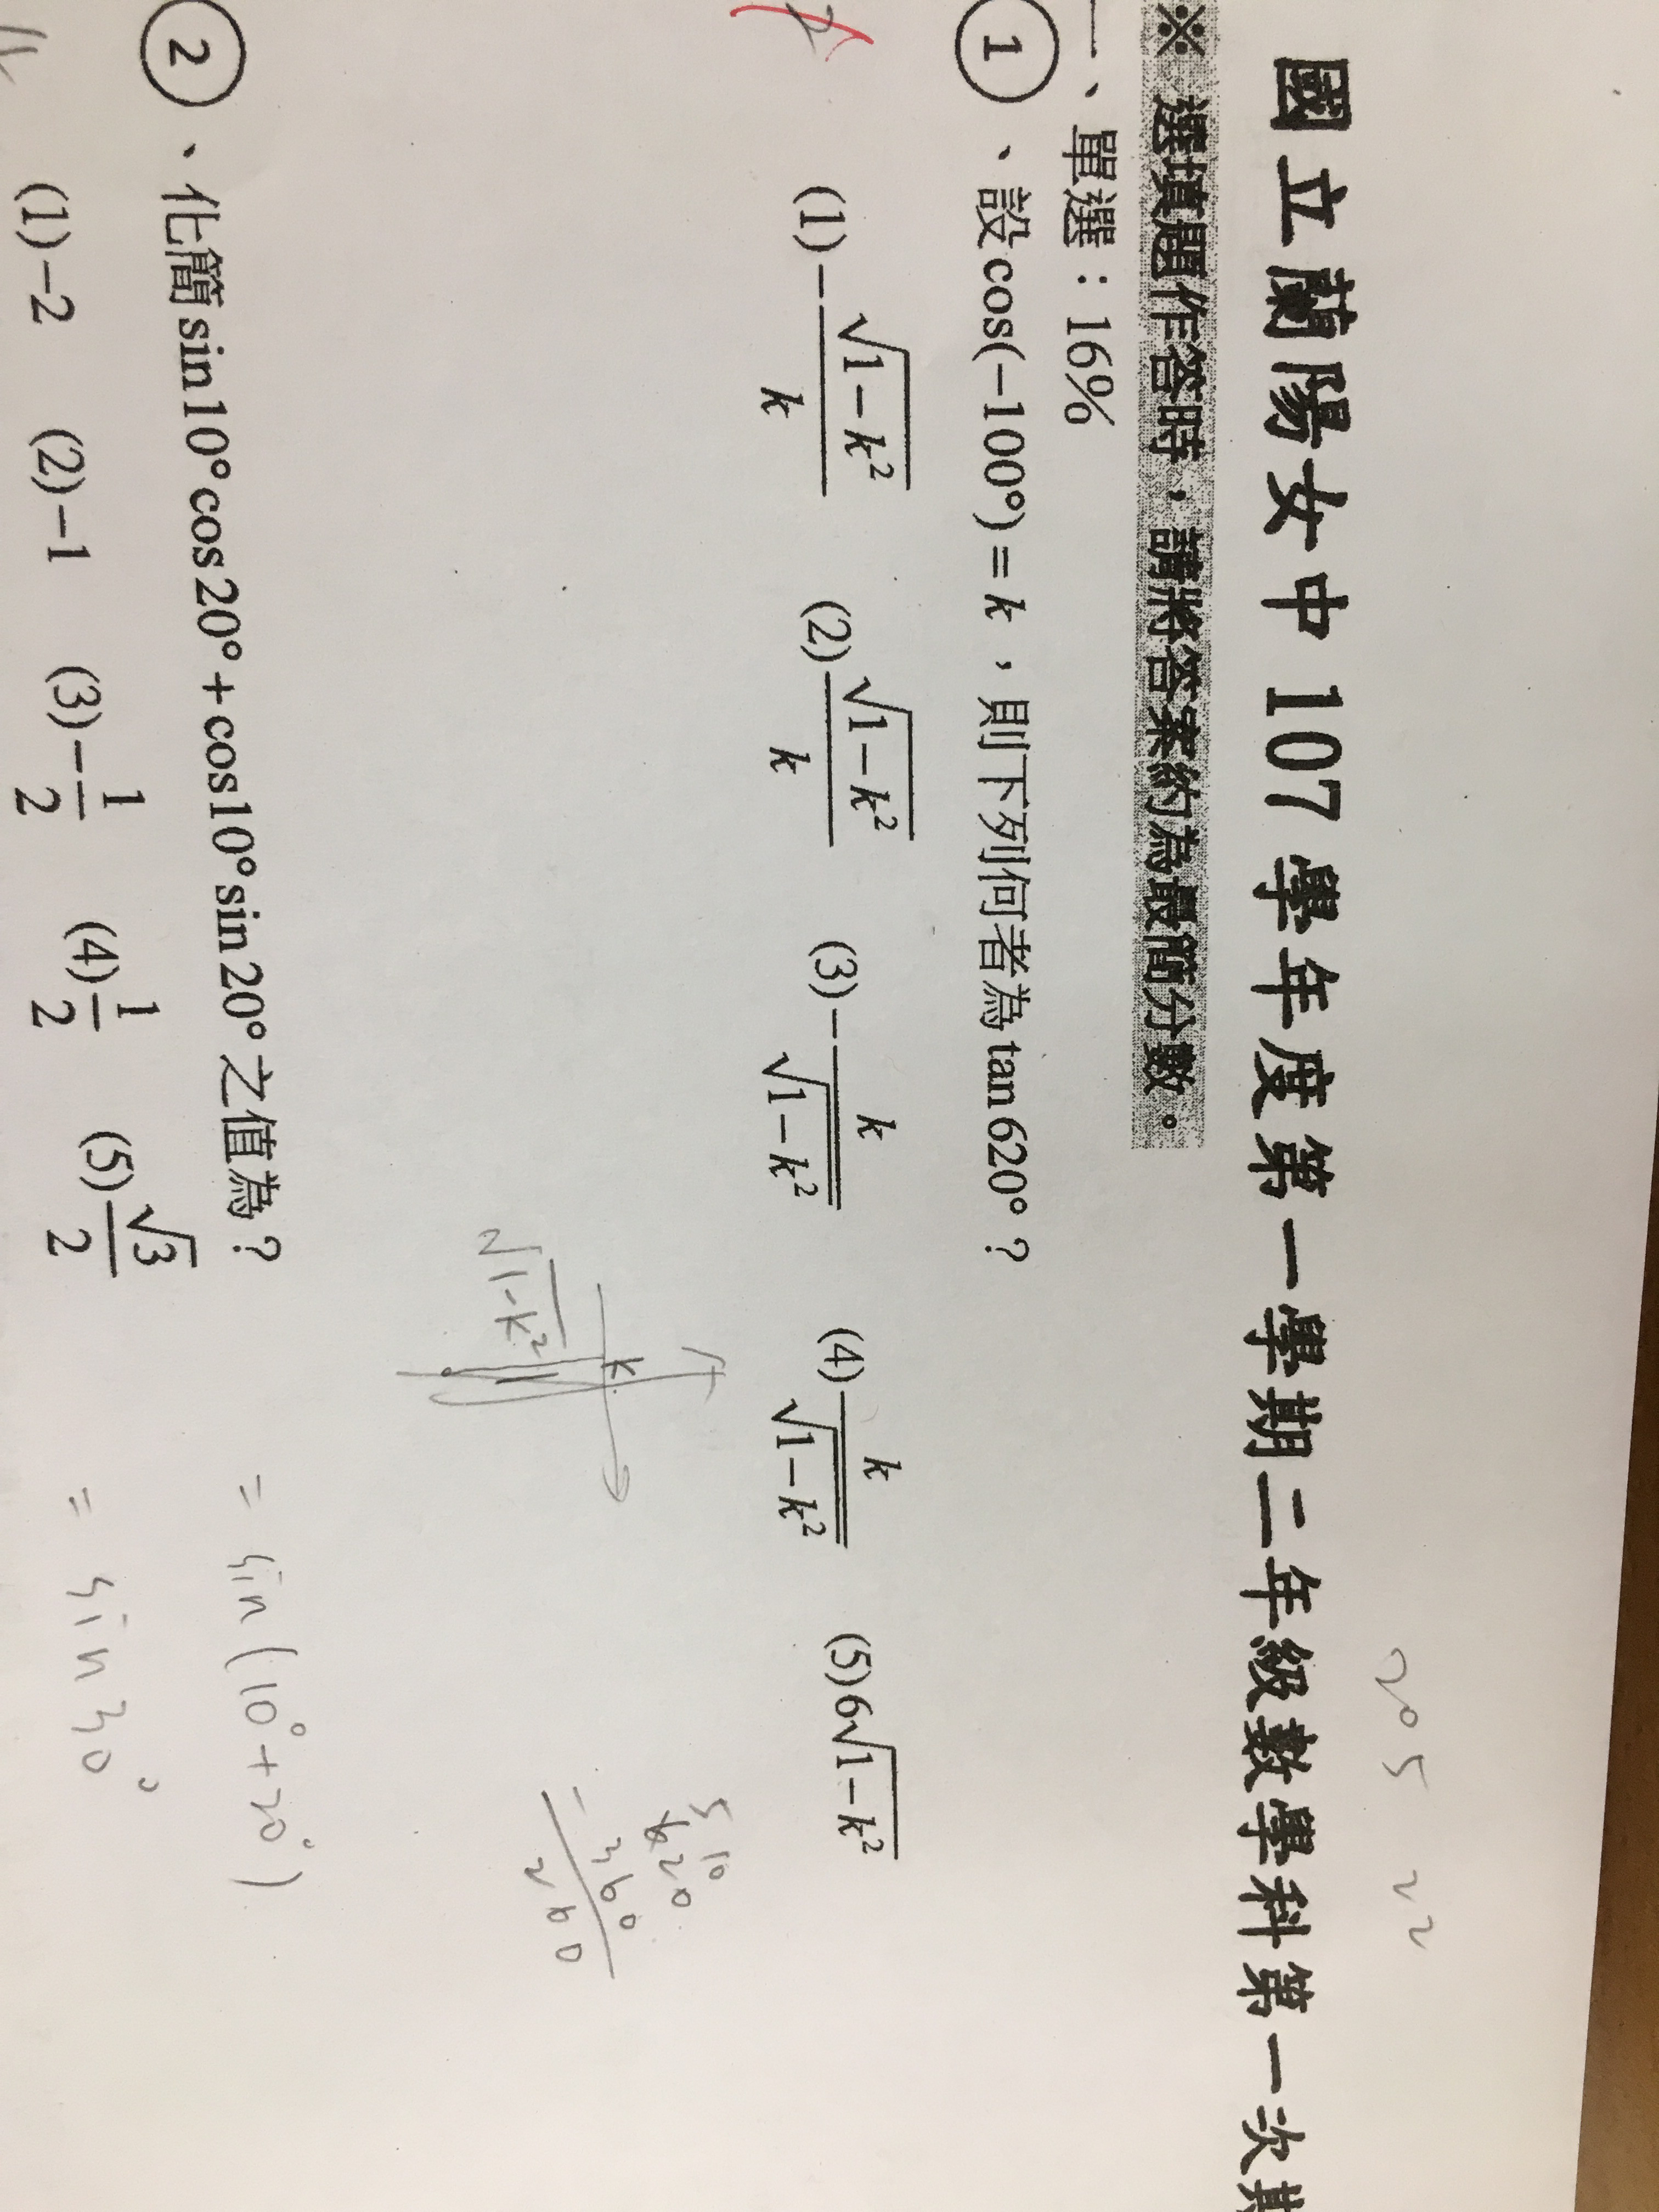 國立蘭陽女中 107 學年度第一學期二年級數學科第一次期
※ 選填題作答時，請將答案約為最簡分數。
一、單選：16%
1、設cos(−100°)=k，則下列何者為tan620°？
(1)−√(1−k²)/k (2)√(1−k²)/k (3)−k/√(1−k²) (4)k/√(1−k²) (5)6√(1−k²)
5 10
620
−360
260
k
√1−k²
2、化簡sin10°cos20°+cos10°sin20°之值為？
= sin(10°+20°)
(1)−2 (2)−1 (3)−1/2 (4)1/2 (5)√3/2
= sin30°